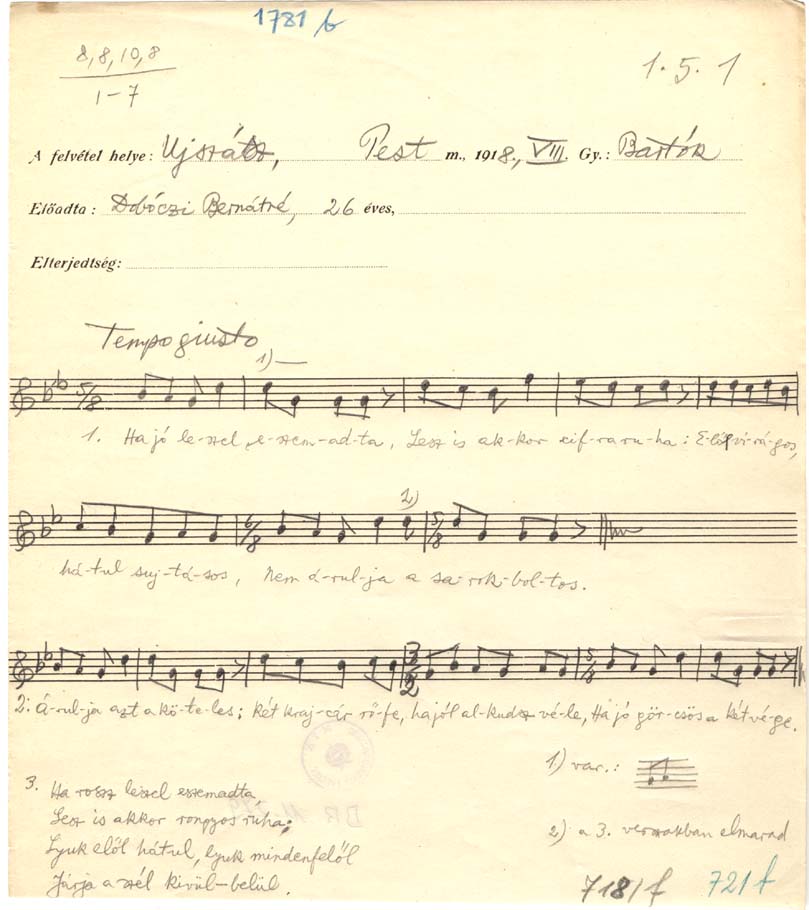 1781 b
8,8,10,8
1-7
1. 5. 1
A felvétel helye: Ujszász, Pest m., 1918., VIII. Gy.: Bartók
Előadta: Dobóczi Bernátné, 26 éves,
Elterjedtség:
Tempo giusto
1)
5/8
1. Ha jó le-szel e-szem-ad-ta, Lesz is ak-kor cif-ra ru-ha: E-lől vi-rá-gos,
2)
6/8 5/8
há-tul suj-tá-sos, Nem á-rul-ja a sa-rok-bol-tos.
3/2 5/8
2: Á-rul-ja azt a kö-te-les; két kraj-cár rő-fe, ha jól al-kudsz vé-le, Ha jó gör-csös a két vé-ge.
1) var.:
3. Ha rossz leszel eszemadta,
Lesz is akkor rongyos ruha;
Lyuk elől hátul, lyuk mindenfelől
Járja a szél kivül-belül.
2) a 3. versszakban elmarad
718/f 721 f